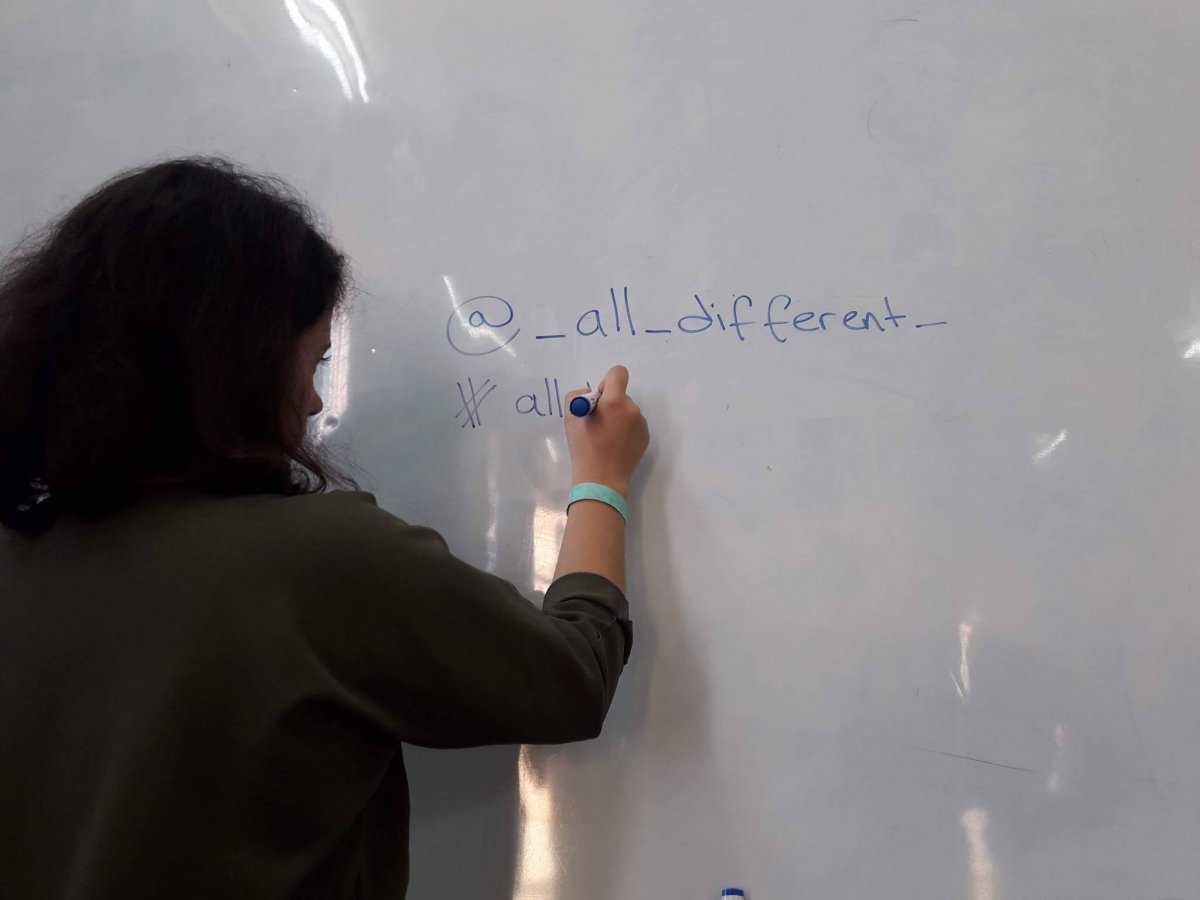 @_all_different_
# all